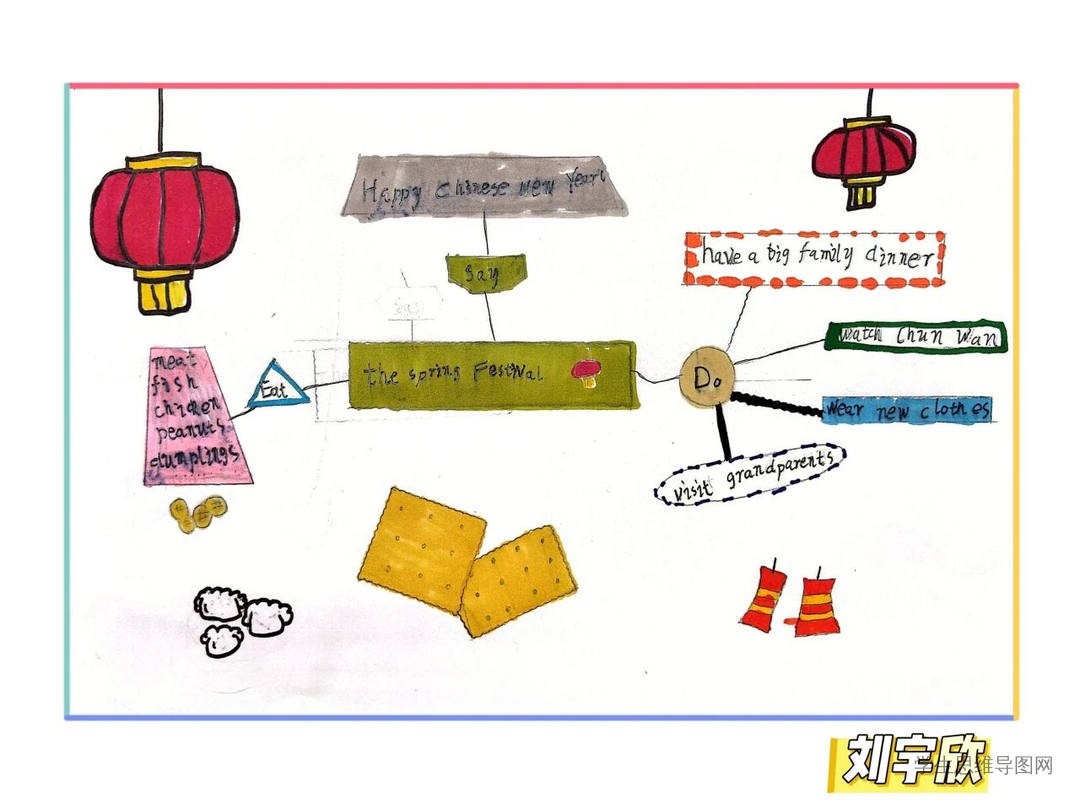 Happy Chinese new Year!
Say
have a big family dinner
the spring Festival
Do
watch Chun Wan
Eat
meat
fish
chicken
peanuts
dumplings
wear new clothes
visit grandparents
刘宇欣
学生思维导图网